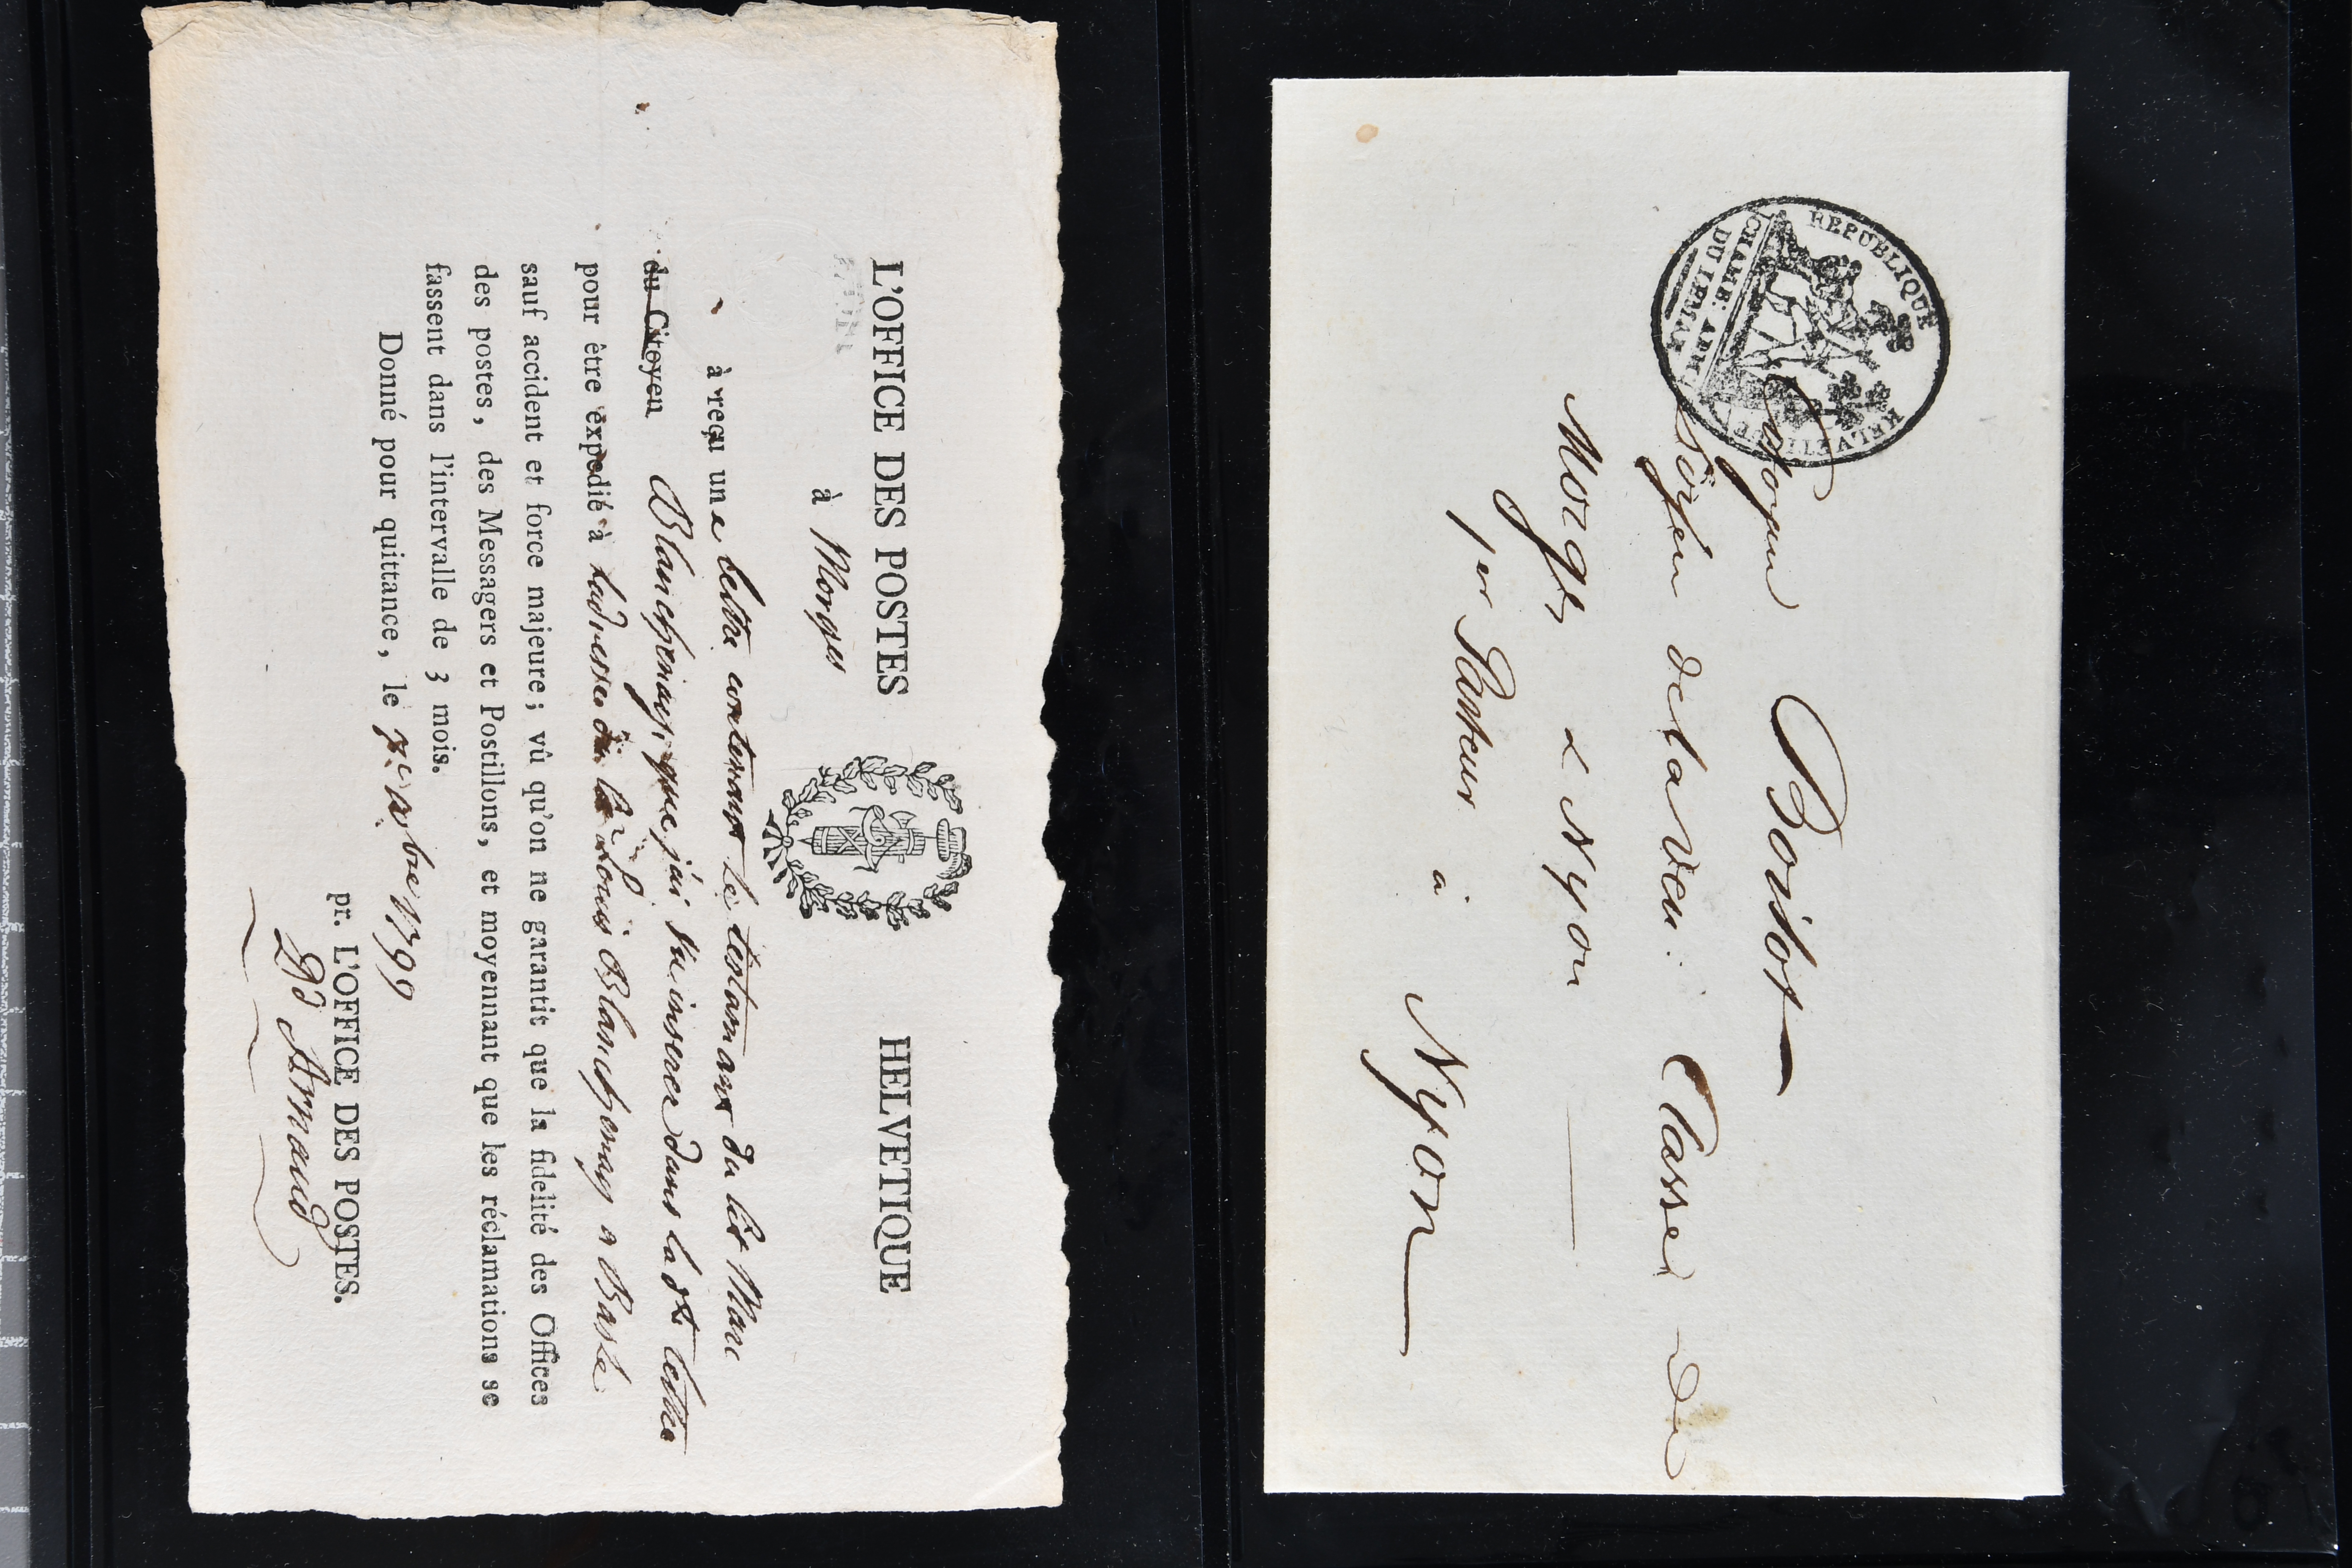 L'OFFICE DES POSTES HELVETIQUE
à Morges
à reçu une lettre contenant le testamant du lit Marc
du Citoyen Blanchenay, que j'ai vu inserer dans la dte lettre
pour être expedié à ladresse du Louis Blanchenay a Basle
sauf accident et force majeure; vû qu'on ne garantit que la fidelité des Offices
des postes, des Messagers et Postillons, et moyennant que les réclamations se
fassent dans l'intervalle de 3 mois.
Donné pour quittance, le 7e 1799
pr. L'OFFICE DES POSTES.
Dd Arnaud
REPUBLIQUE HELVETIQUE
CHAMB: ADM:
DU LEMAN
Citoyen Boisot
de la Ven: Classe de
Morges & Nyon
1er Pasteur à Nyon